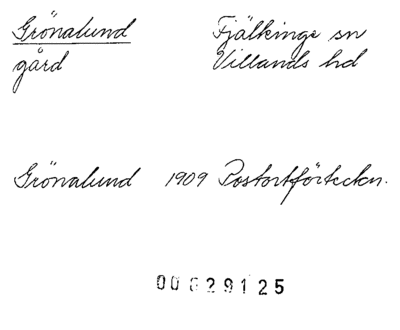 Grönalund Fjälkinge sn
gård Villands hd
Grönalund 1909 Postortförteckn.
00029125